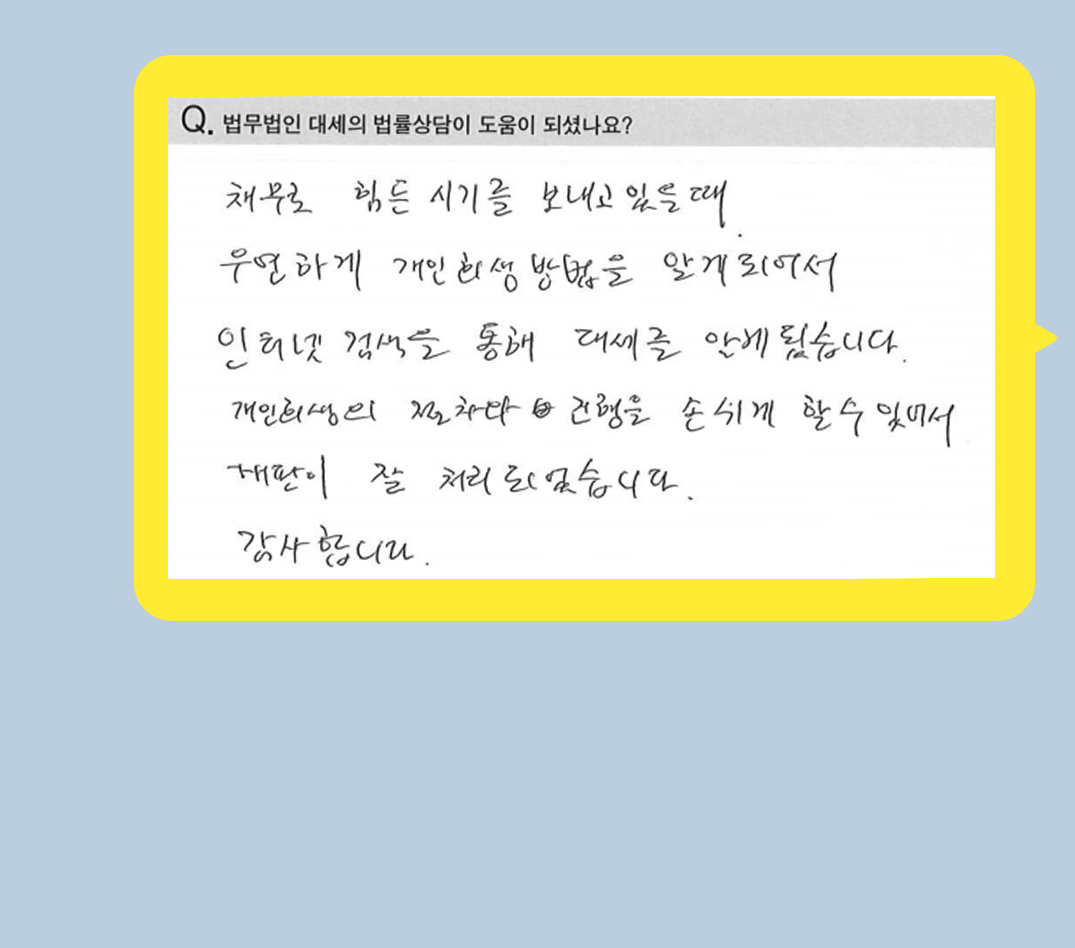 Q. 법무법인 대세의 법률상담이 도움이 되셨나요?
채무로 힘든 시기를 보내고 있을때.
우연하게 개인회생 방법을 알게되어서
인터넷 검색을 통해 대세를 알게됬습니다.
개인회생의 절차와 진행을 손쉽게 할수있어서
재판이 잘 처리되었습니다.
감사합니다.